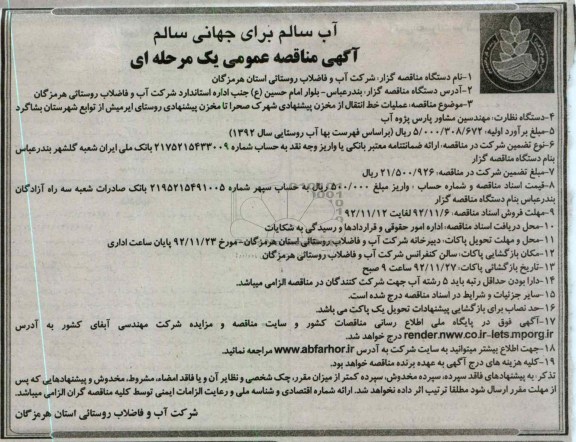 آب سالم برای جهانی سالم
آگهی مناقصه عمومی یک مرحله ای
۱-نام دستگاه مناقصه گزار: شرکت آب و فاضلاب روستائی استان هرمزگان
۲-آدرس دستگاه مناقصه گزار: بندرعباس- بلوار امام حسین (ع) جنب اداره استاندارد شرکت آب و فاضلاب روستائی هرمزگان
۳-موضوع مناقصه: عملیات خط انتقال از مخزن پیشنهادی شهرک صحرا تا مخزن پیشنهادی روستای ایرمیش از توابع شهرستان بشاگرد
۴-دستگاه نظارت: مهندسین مشاور پارس پژوه آب
۵-مبلغ برآورد اولیه: ۵/۰۰۰/۳۰۸/۶۷۲ ریال (براساس فهرست بها آب روستایی سال ۱۳۹۲)
۶-نوع تضمین شرکت در مناقصه: ارائه ضمانتنامه معتبر بانکی یا واریز وجه نقد به حساب شماره ۲۱۷۵۲۱۵۴۳۳۰۰۹ بانک ملی ایران شعبه گلشهر بندرعباس
بنام دستگاه مناقصه گزار
۷-مبلغ تضمین شرکت در مناقصه: ۲۱/۵۰۰/۹۲۶ ریال
۸-قیمت اسناد مناقصه و شماره حساب : واریز مبلغ ۵۰۰/۰۰۰ ریال به حساب سپهر شماره ۲۱۹۵۲۱۵۴۹۱۰۰۵ بانک صادرات شعبه سه راه آزادگان
بندرعباس بنام دستگاه مناقصه گزار
۹-مهلت فروش اسناد مناقصه: ۹۲/۱۱/۶ لغایت ۹۲/۱۱/۱۲
۱۰-محل دریافت اسناد مناقصه: اداره امور حقوقی و قراردادها و رسیدگی به شکایات
۱۱-محل و مهلت تحویل پاکات: دبیرخانه شرکت آب و فاضلاب روستائی استان هرمزگان- مورخ ۹۲/۱۱/۲۳ پایان ساعت اداری
۱۲-مکان بازگشایی پاکات: سالن کنفرانس شرکت آب و فاضلاب روستائی هرمزگان
۱۳-تاریخ بازگشائی پاکات: ۹۲/۱۱/۲۷ ساعت ۹ صبح
۱۴-دارا بودن حداقل رتبه باید ۵ رشته آب جهت شرکت کنندگان در مناقصه الزامی میباشد.
۱۵-سایر جزئیات و شرایط در اسناد مناقصه درج شده است.
۱۶-حد نصاب برای بازگشایی پیشنهادات تحویل یک پاکت می باشد.
۱۷-آگهی فوق در پایگاه ملی اطلاع رسانی مناقصات کشور و سایت مناقصه و مزایده شرکت مهندسی آبفای کشور به آدرس
render.nww.co.ir-lets.mporg.ir درج خواهد شد.
۱۸-جهت اطلاع بیشتر میتوانید به سایت شرکت به آدرس www.abfarhor.ir مراجعه نمائید.
۱۹-کلیه هزینه های درج آگهی به عهده برنده مناقصه خواهد بود.
تذکر: به پیشنهادهای فاقد سپرده، سپرده مخدوش، سپرده کمتر از میزان مقرر، چک شخصی و نظایر آن و یا فاقد امضاء، مشروط، مخدوش و پیشنهادهایی که پس
از مهلت مقرر ارسال شود مطلقا ترتیب اثر داده نخواهد شد. ارائه شماره اقتصادی و شناسه ملی و رعایت الزامات ایمنی توسط کلیه مناقصه گران الزامی میباشد.
شرکت آب و فاضلاب روستائی استان هرمزگان